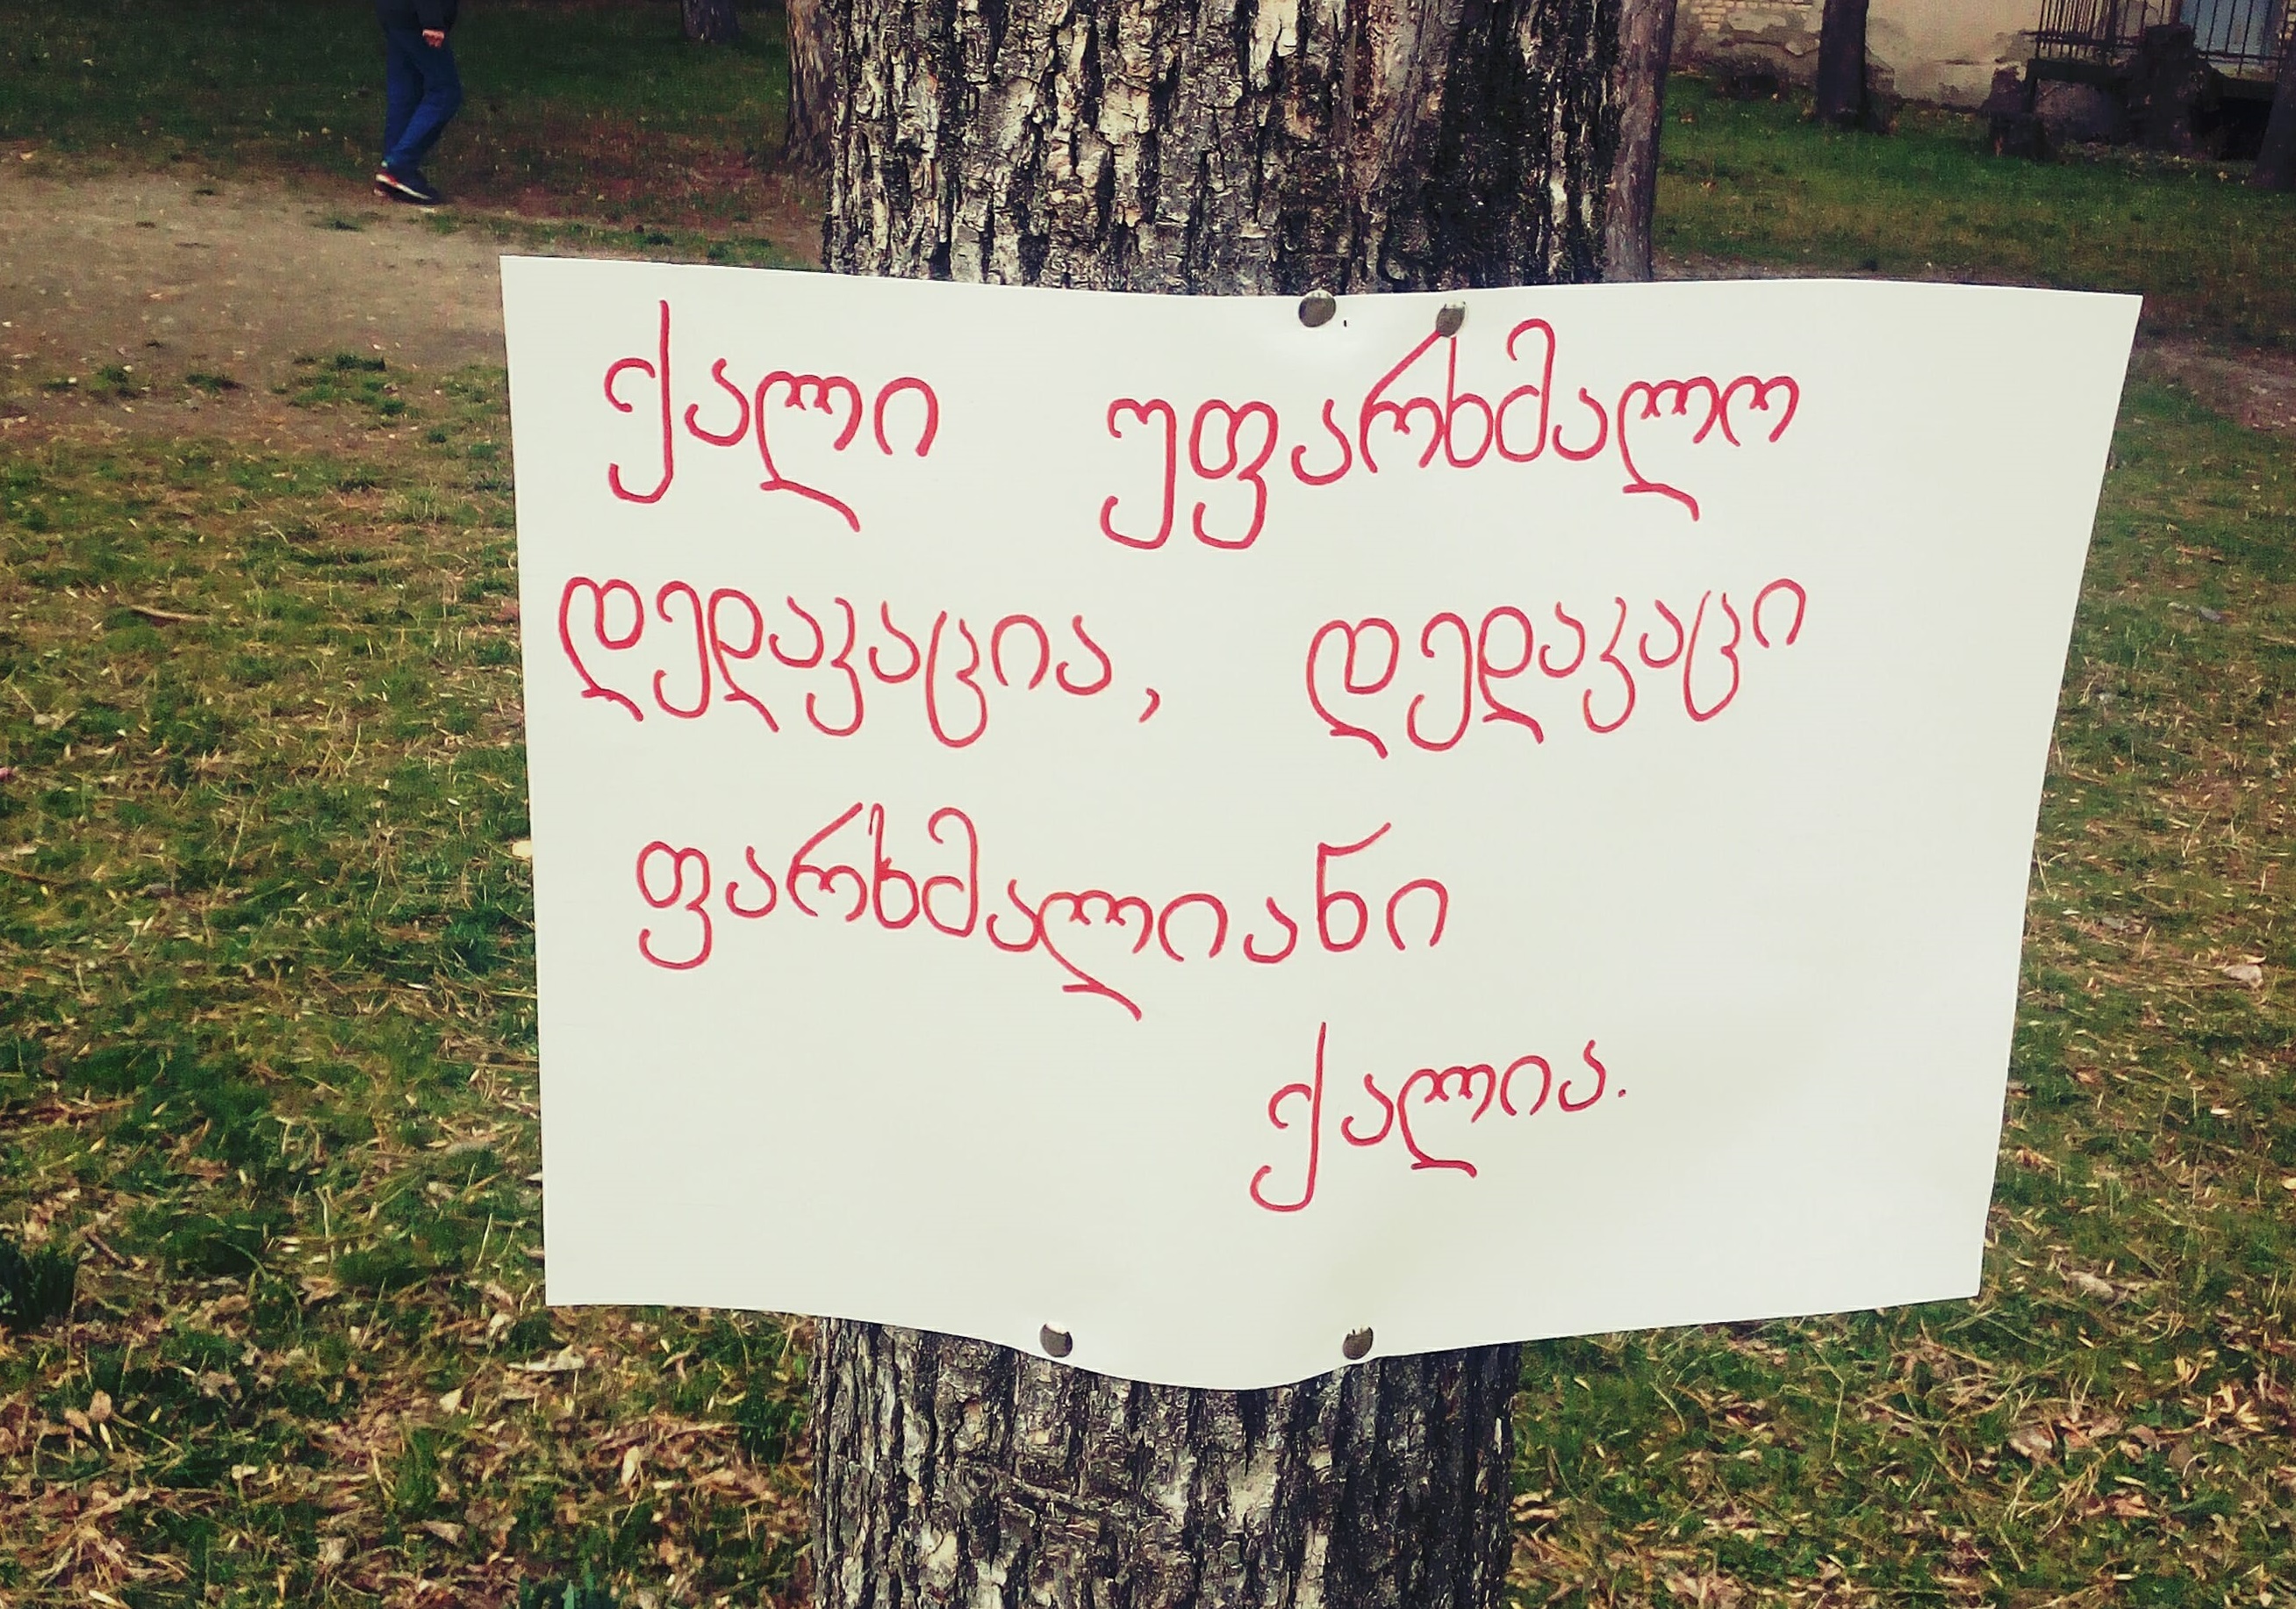 ქალი უფარხმალო
დედაკაცია, დედაკაცი
ფარხმალიანი
ქალია.